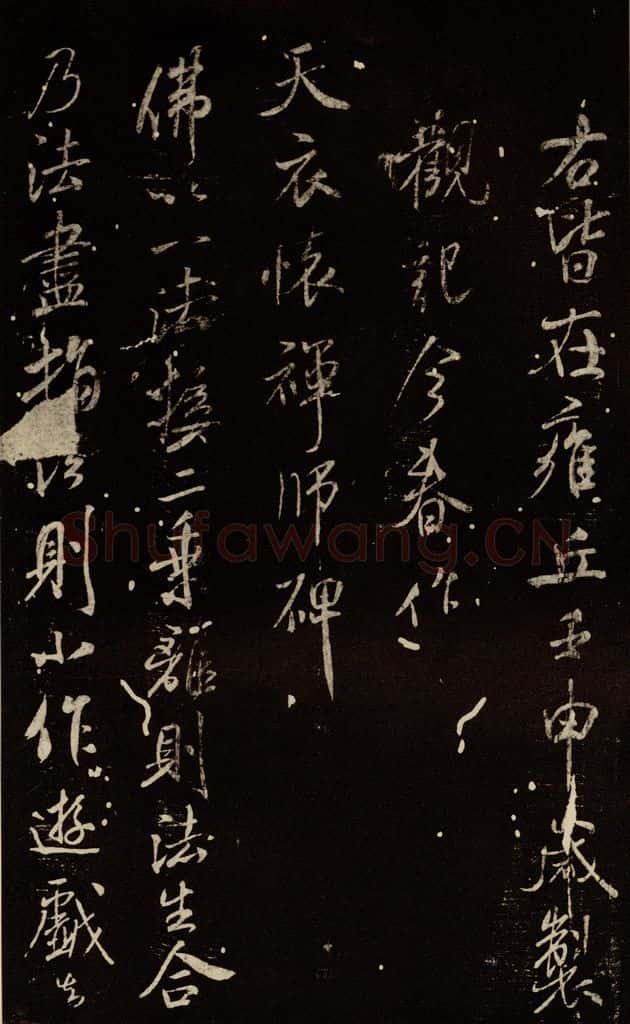 右皆在雍丘壬申歲製
觀記今春作
天衣懷禪師碑
佛以一法接二乘離則法生合
乃法盡指法則小作遊戲
Shufawang.CN